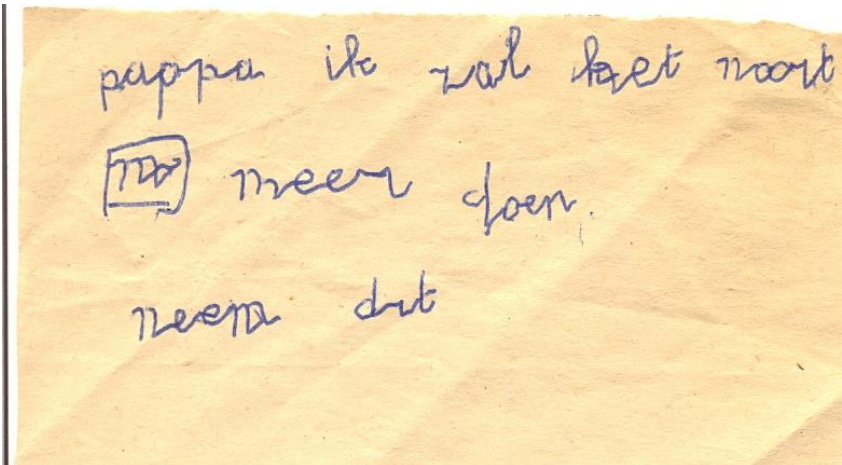 pappa ik zal het nooit
no meer doen.
neem dit